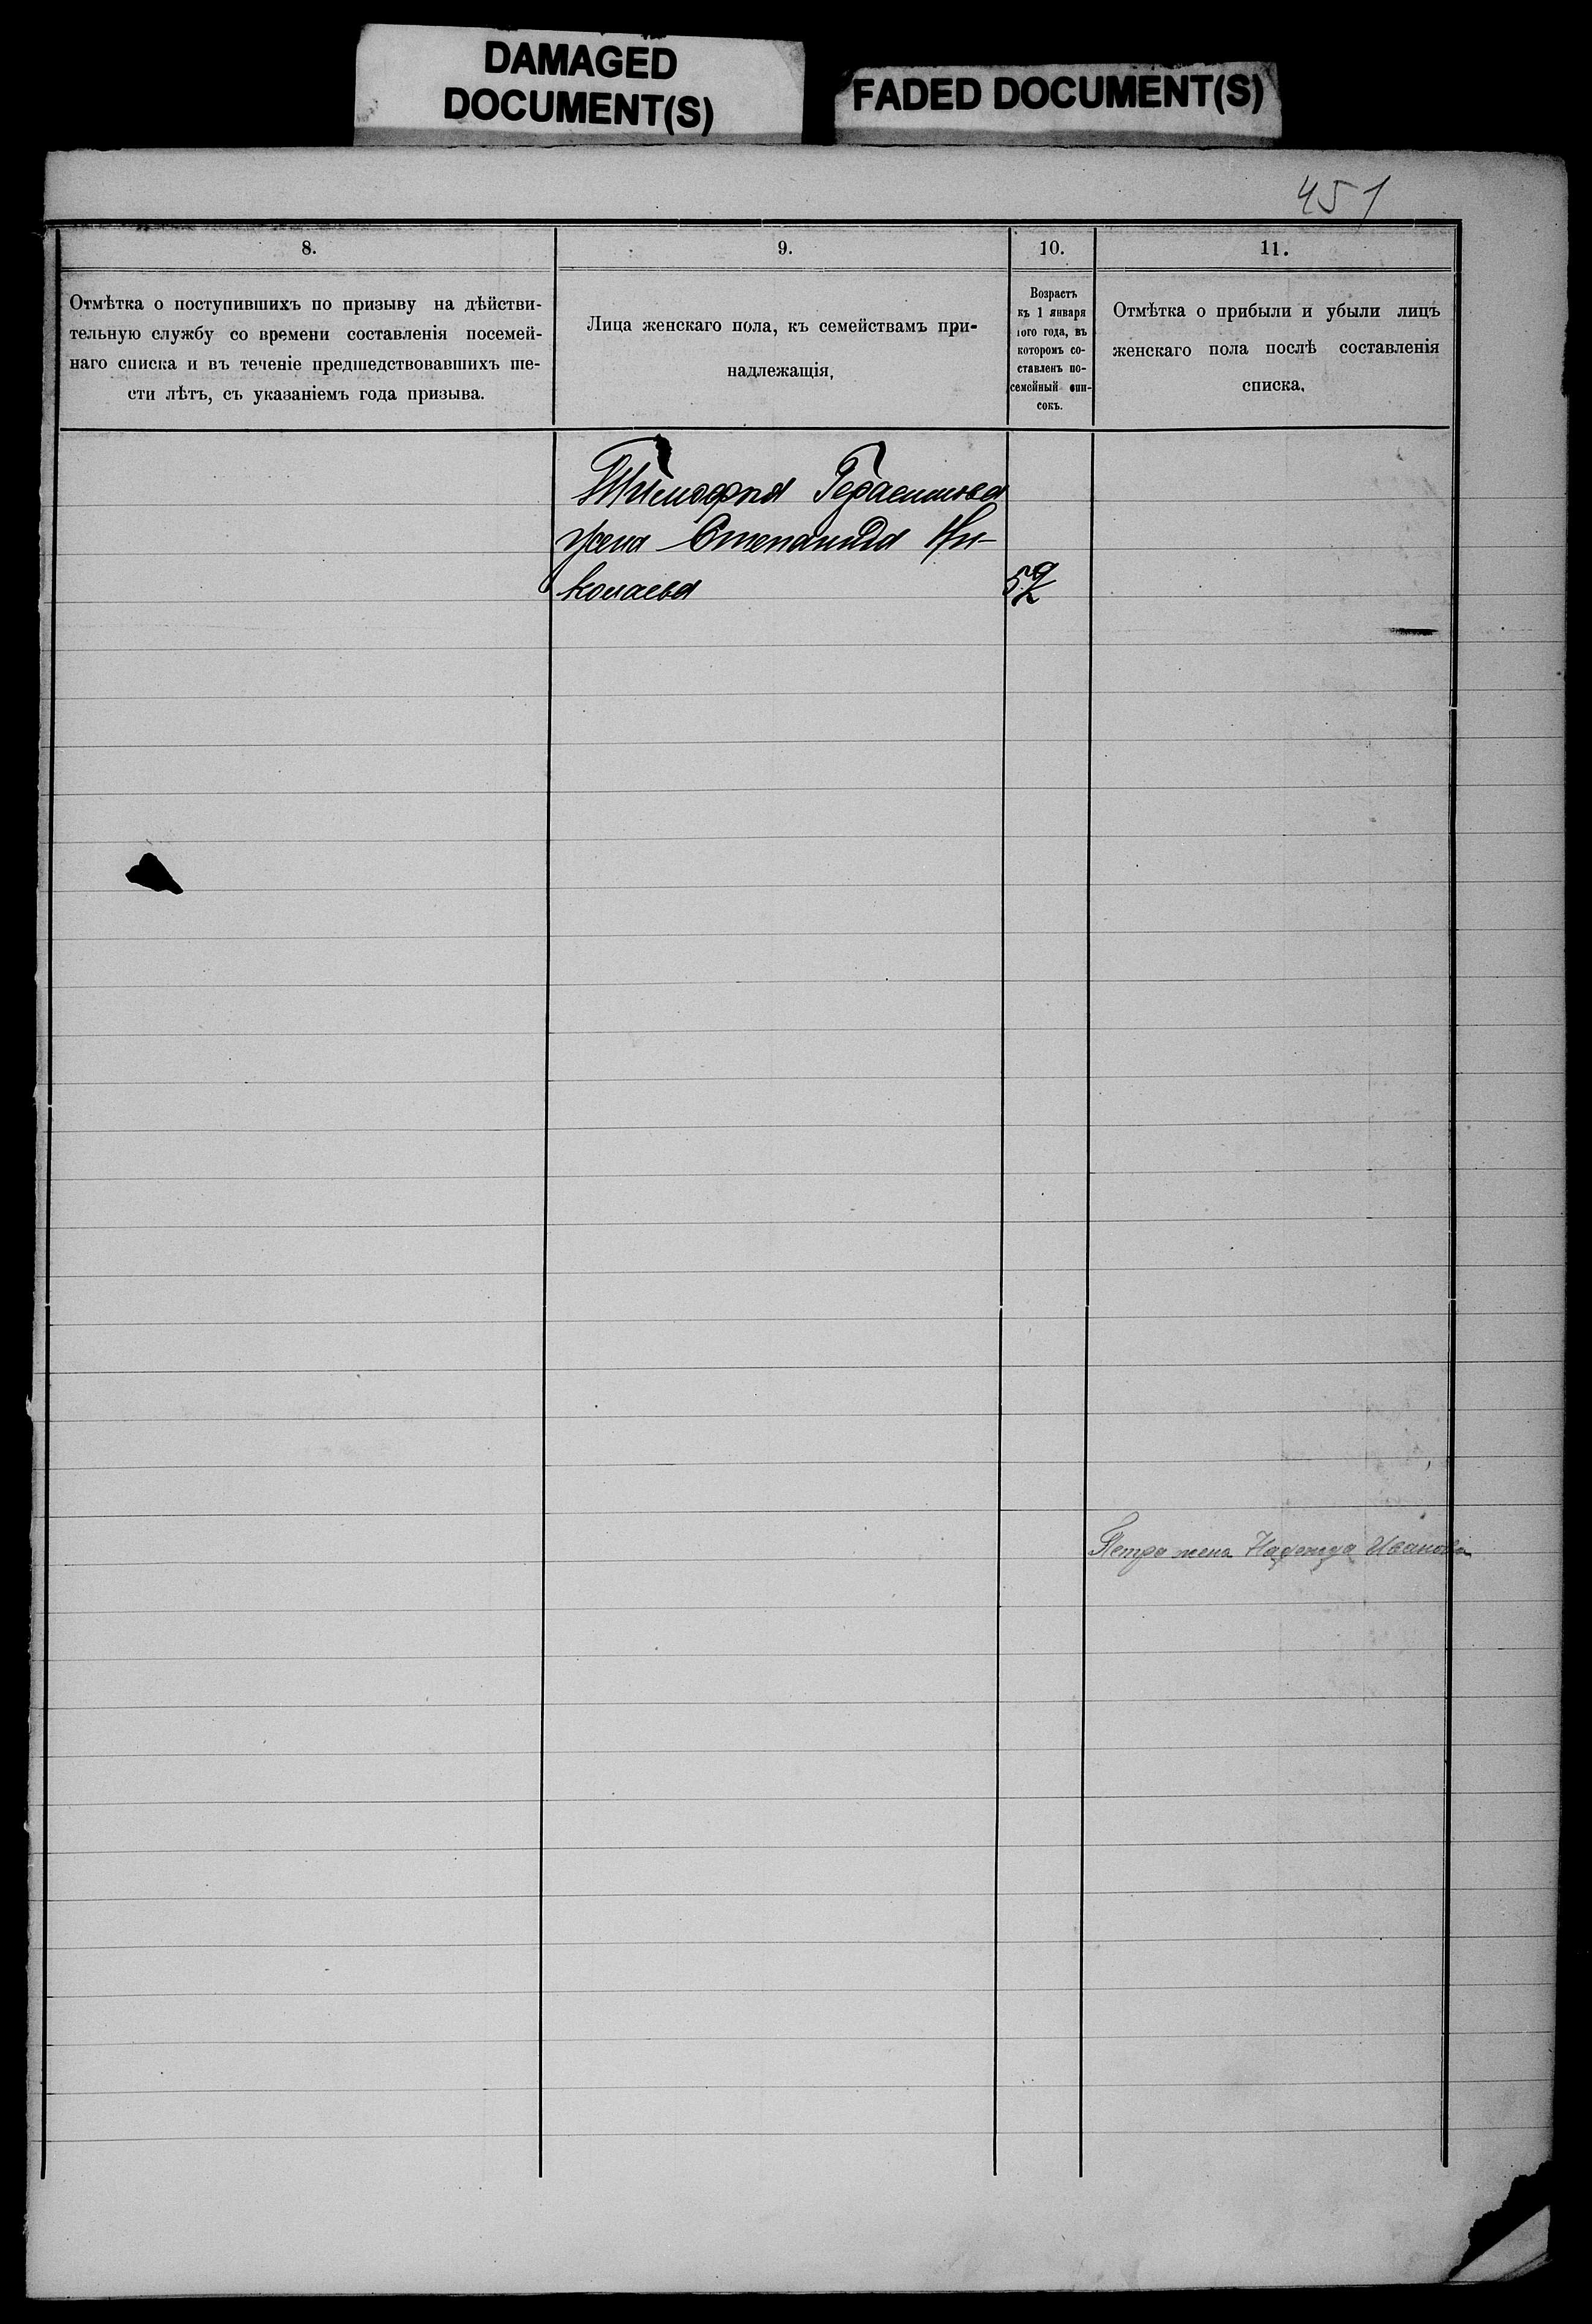 DAMAGED
DOCUMENT(S)
FADED DOCUMENT(S)
451
8.
9.
10.
11.
Отмѣтка о поступившихъ по призыву на дѣйстви-
тельную службу со времени составленія посемей-
наго списка и въ теченіе предшедствовавшихъ ше-
сти лѣтъ, съ указаніемъ года призыва.
Лица женскаго пола, къ семействамъ при-
надлежащія,
Возрастъ
къ 1 января
того года, въ
которомъ со-
ставленъ по-
семейный спи-
сокъ.
Отмѣтка о прибыли и убыли лицъ
женскаго пола послѣ составленія
списка.
Тимофея Герасимова
жена Степанида Ни-
колаева
Петра жена Надежда Иванова